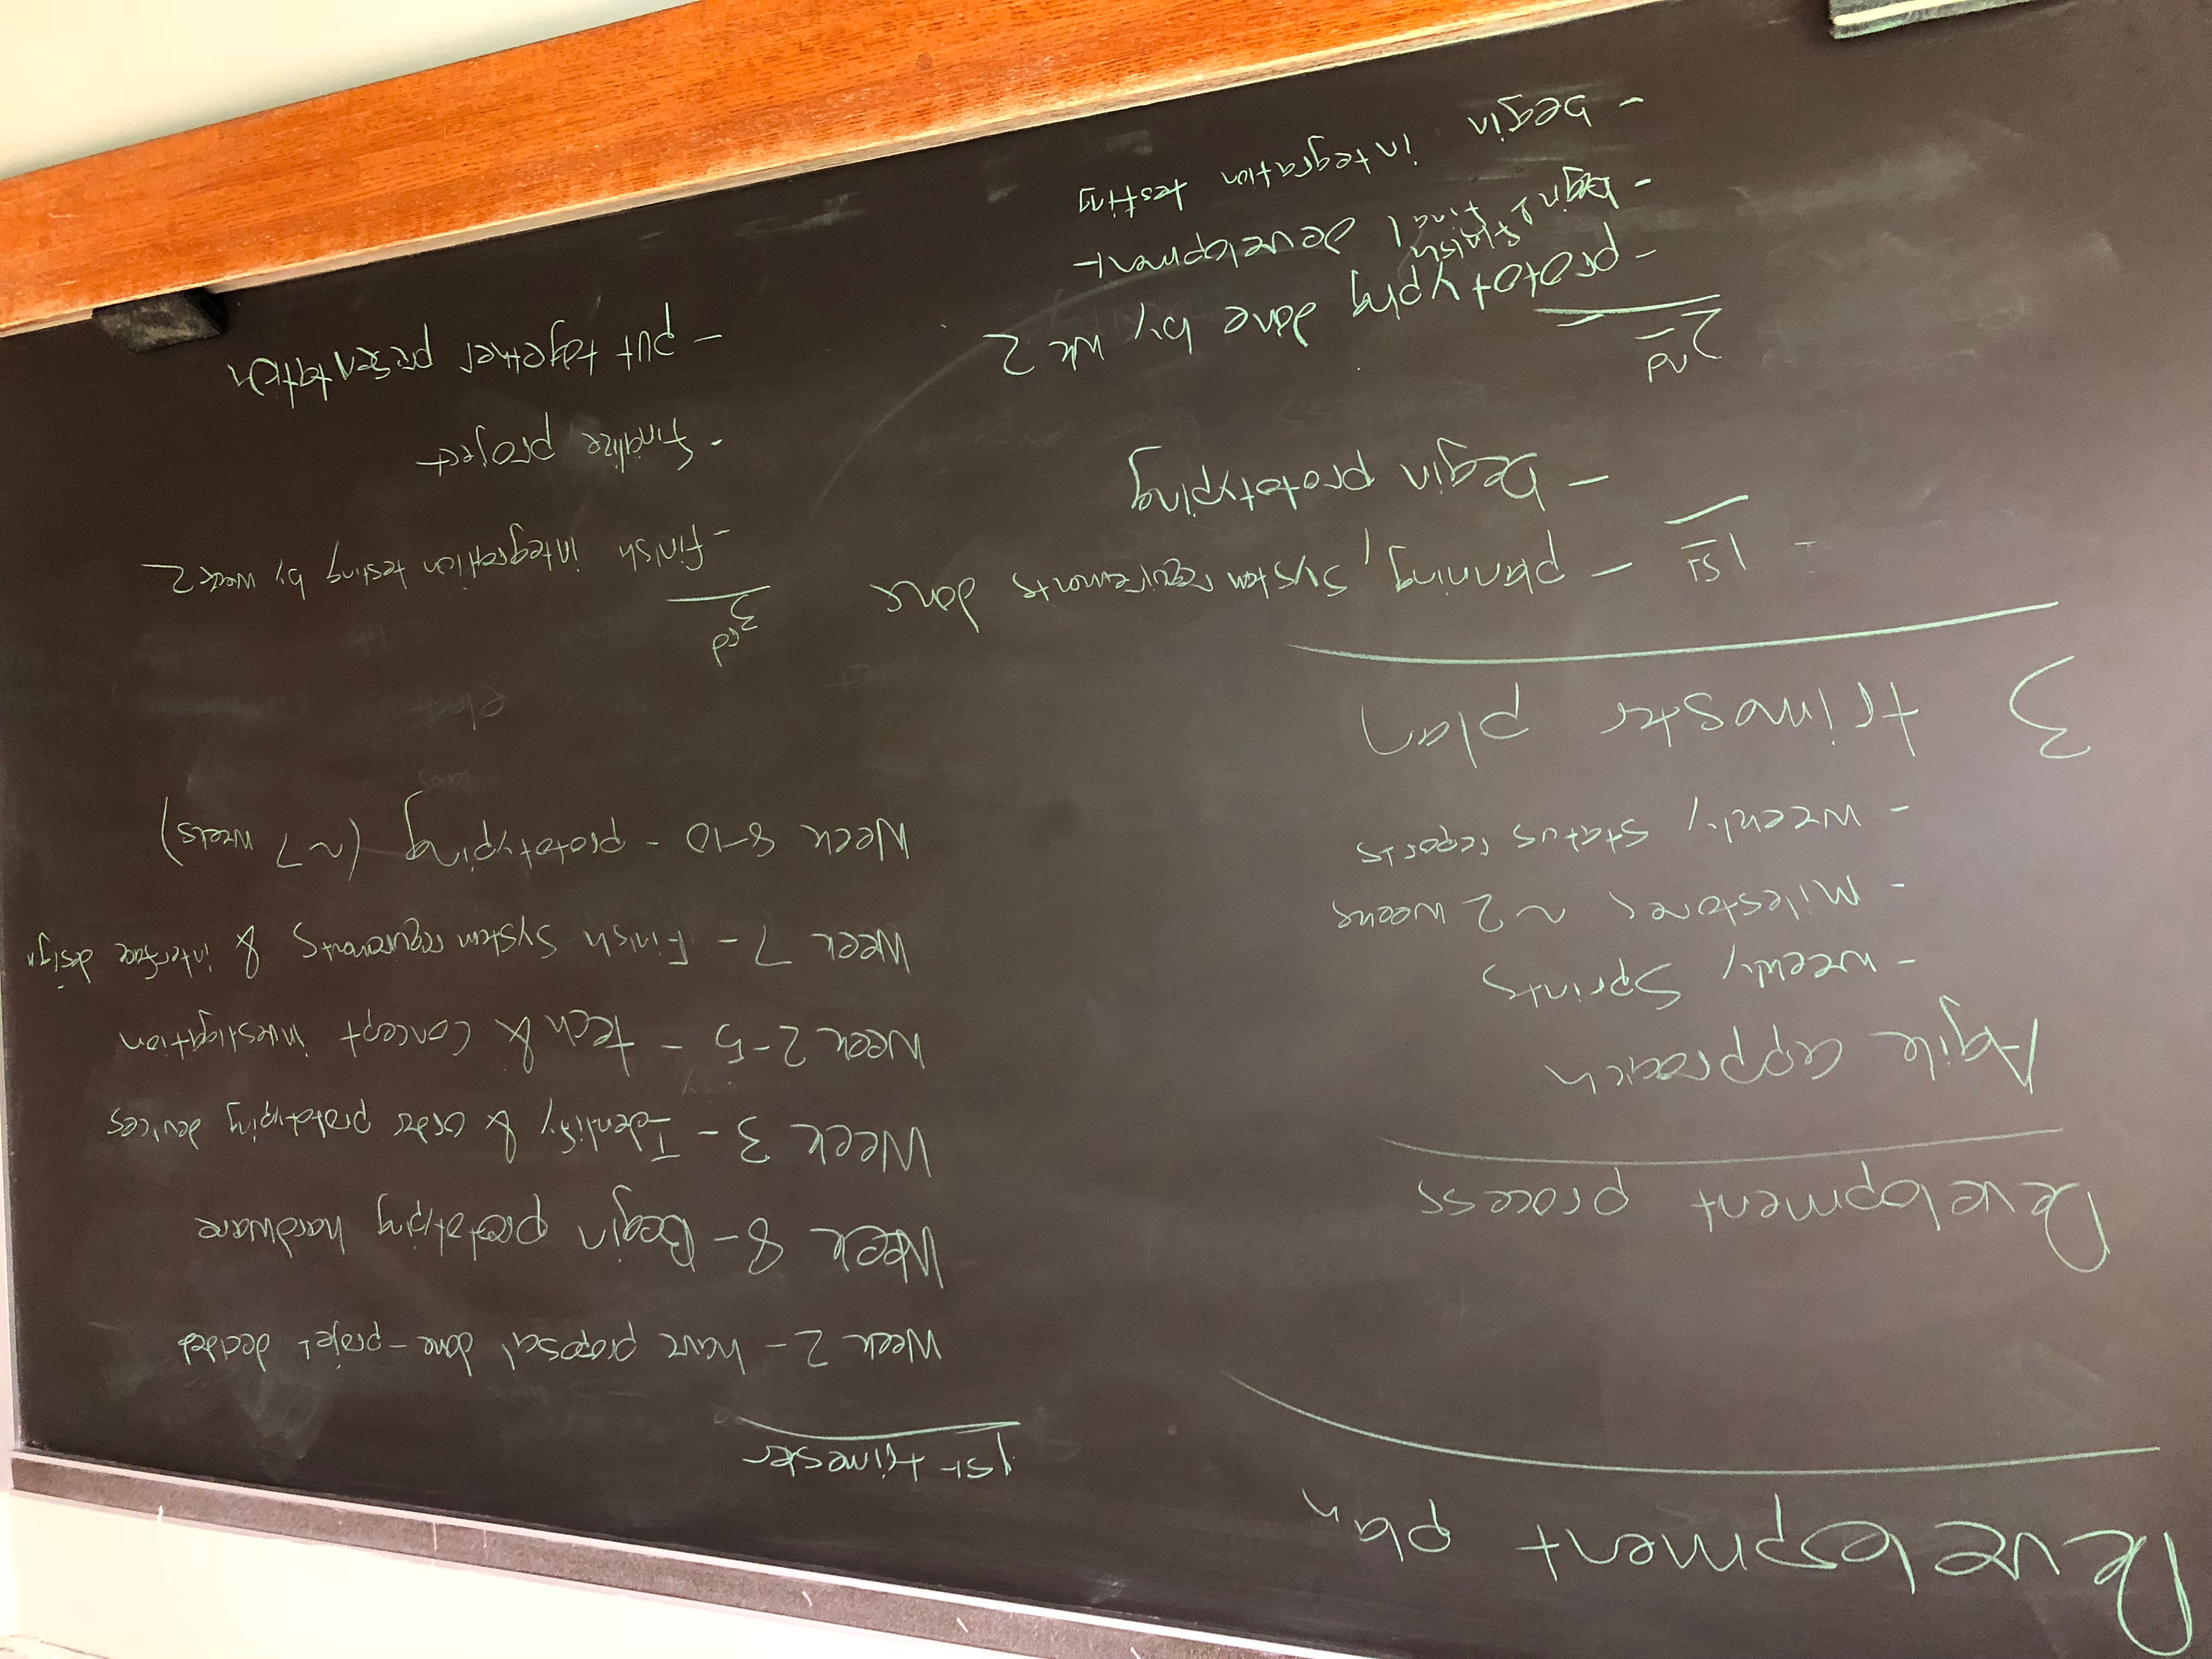 Development plan
Development process
Agile approach
- weekly Sprints
- Milestones ~2 weeks
- weekly status reports
3 trimester plan
- 1st - planning, System requirements done
- begin prototyping
2nd
- prototyping done by wk 2
- begin & finish final development
- begin integration testing
1st trimester
Week 2 - have proposal done - projet decided
Week 8 - Begin prototyping hardware
Week 3 - Identify & order prototyping devices
Week 2-5 - tech & Concept investigation
Week 7 - Finish System requirements & interface design
Week 8-10 - prototyping (~7 weeks)
labs
elect
3rd
- finish integration testing by week 2
- finalize project
- put together presentation